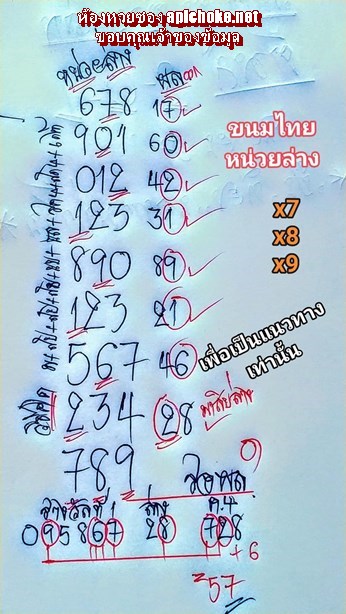 ห้องหวยซอง apichoke.net
ขอบคุณเจ้าของข้อมูล
หน่วยล่าง ผล
678 17
ขนมไทย
901 60
หน่วยล่าง
012 42
123 31
x7
x8
890 89
x9
123 21
567 46
เพื่อเป็นแนวทาง
เท่านั้น
234 28
789 รอผล
รางวัลที่ 1 ล่าง
095867 28 728
+6
57